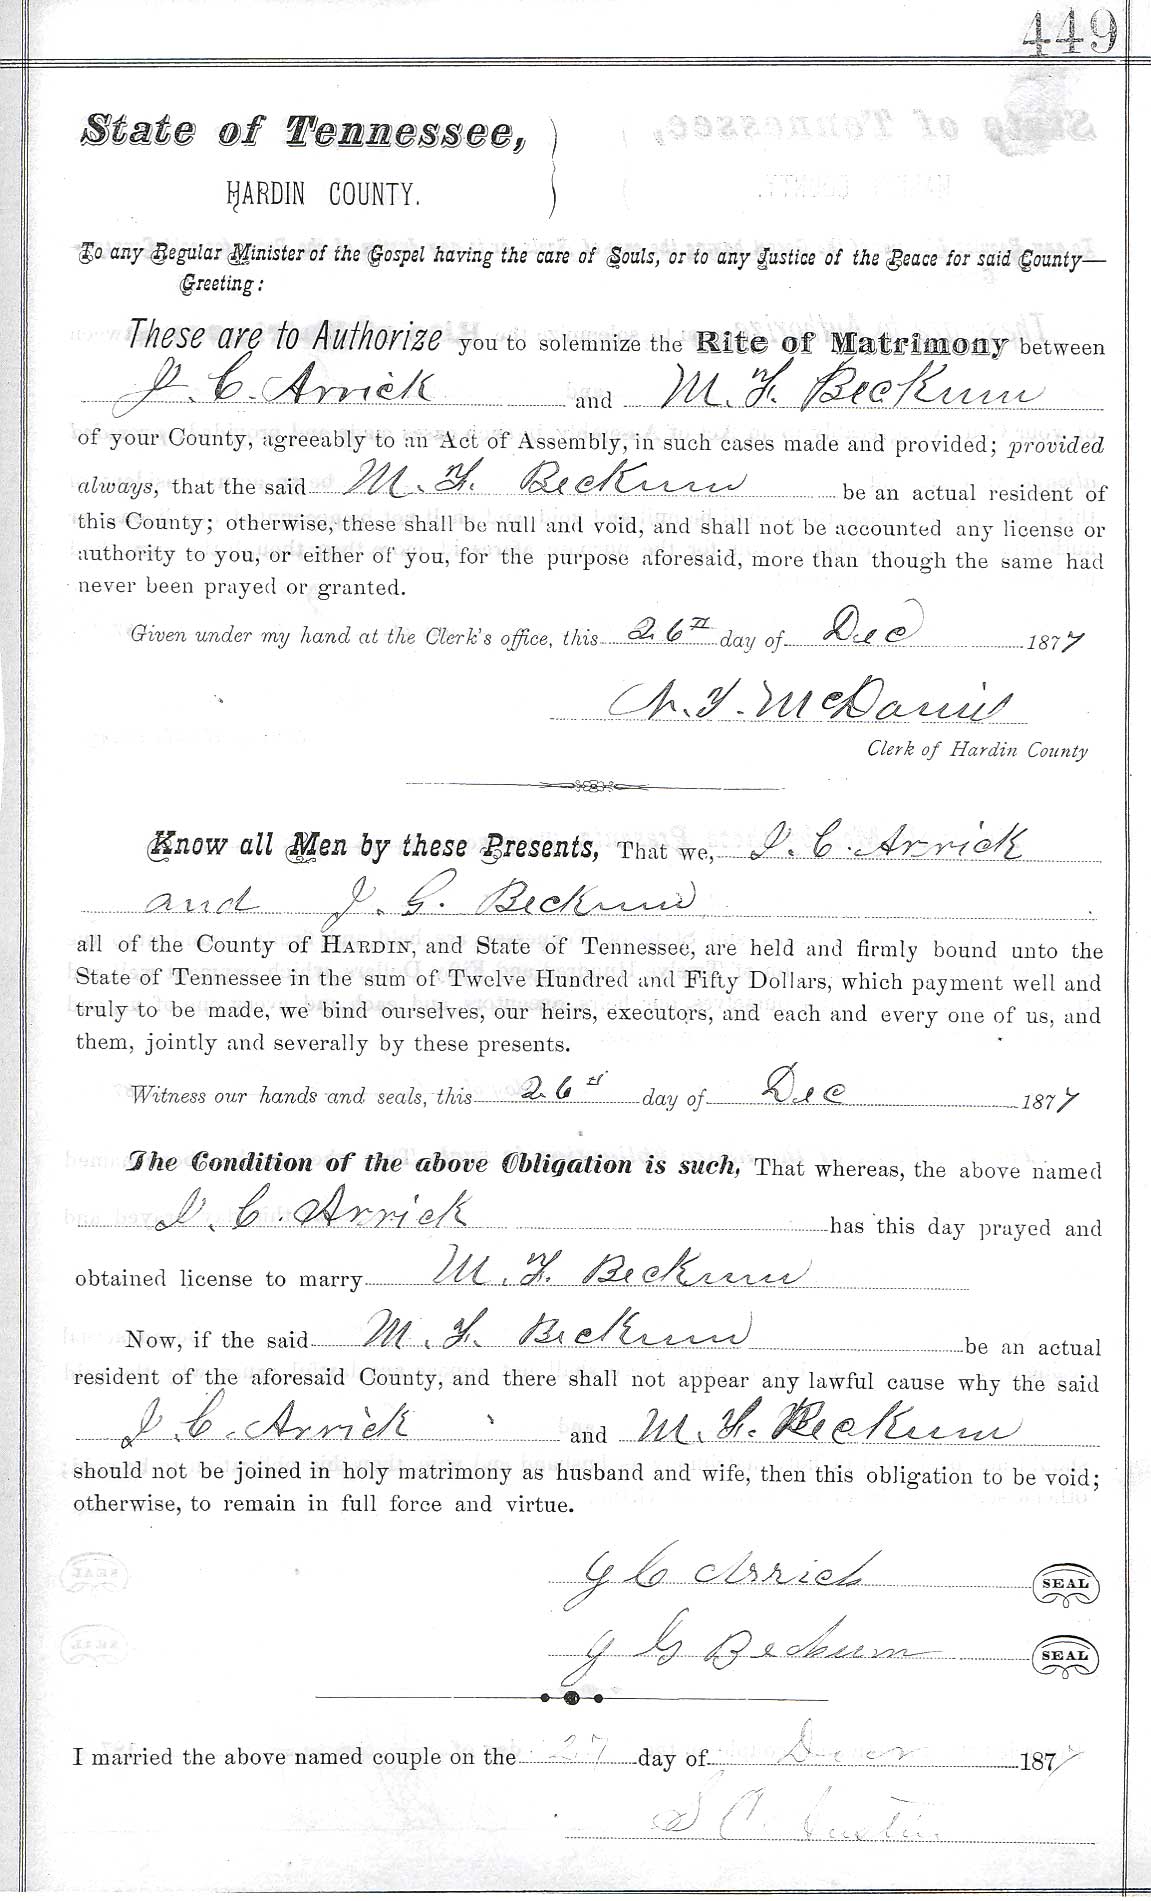 449
State of Tennessee,
HARDIN COUNTY.
To any Regular Minister of the Gospel having the care of Souls, or to any Justice of the Peace for said County—
Greeting:
These are to Authorize you to solemnize the Rite of Matrimony between
J. C. Arrick and M. F. Beckum
of your County, agreeably to an Act of Assembly, in such cases made and provided; provided
always, that the said M. F. Beckum be an actual resident of
this County; otherwise, these shall be null and void, and shall not be accounted any license or
authority to you, or either of you, for the purpose aforesaid, more than though the same had
never been prayed or granted.
Given under my hand at the Clerk's office, this 26th day of Dec 1877
McDaniel
Clerk of Hardin County
Know all Men by these Presents, That we, J. C. Arrick
and J. G. Beckum
all of the County of HARDIN, and State of Tennessee, are held and firmly bound unto the
State of Tennessee in the sum of Twelve Hundred and Fifty Dollars, which payment well and
truly to be made, we bind ourselves, our heirs, executors, and each and every one of us, and
them, jointly and severally by these presents.
Witness our hands and seals, this 26th day of Dec 1877
The Condition of the above Obligation is such, That whereas, the above named
J. C. Arrick has this day prayed and
obtained license to marry M. F. Beckum
Now, if the said M. F. Beckum be an actual
resident of the aforesaid County, and there shall not appear any lawful cause why the said
J. C. Arrick and M. F. Beckum
should not be joined in holy matrimony as husband and wife, then this obligation to be void;
otherwise, to remain in full force and virtue.
J C Arrick SEAL
J G Beckum SEAL
I married the above named couple on the 27 day of Decr 1877